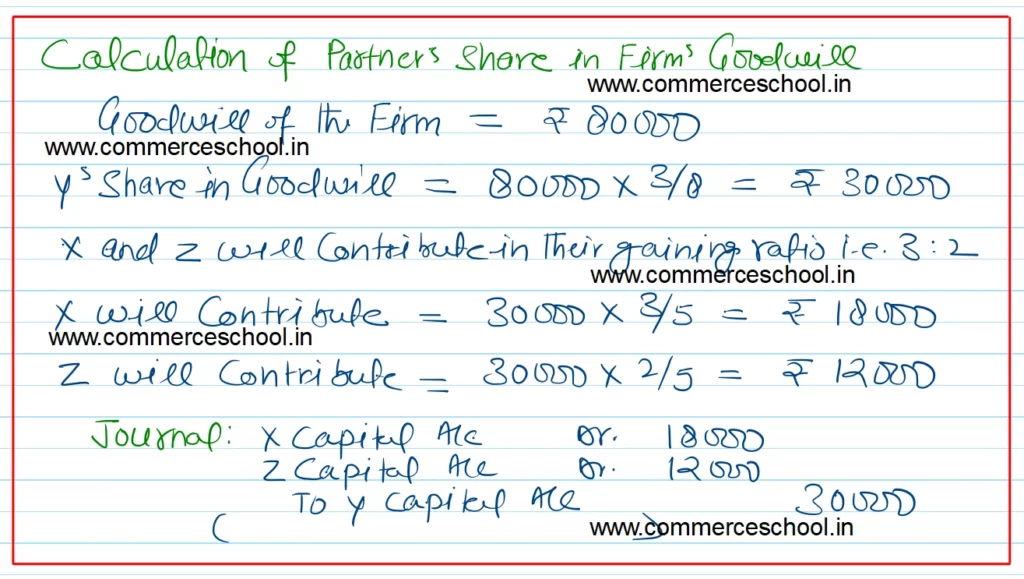 Calculation of Partners Share in Firm's Goodwill
www.commerceschool.in
Goodwill of the Firm = ₹ 80000
www.commerceschool.in
Y's Share in Goodwill = 80000 × 3/8 = ₹ 30000
X and Z will Contribute in Their gaining ratio i.e. 3:2
www.commerceschool.in
X will Contribute = 30000 × 3/5 = ₹ 18000
www.commerceschool.in
Z will Contribute = 30000 × 2/5 = ₹ 12000
Journal: X Capital A/c Dr. 18000
Z Capital A/c Dr. 12000
To Y Capital A/c 30000
( www.commerceschool.in )